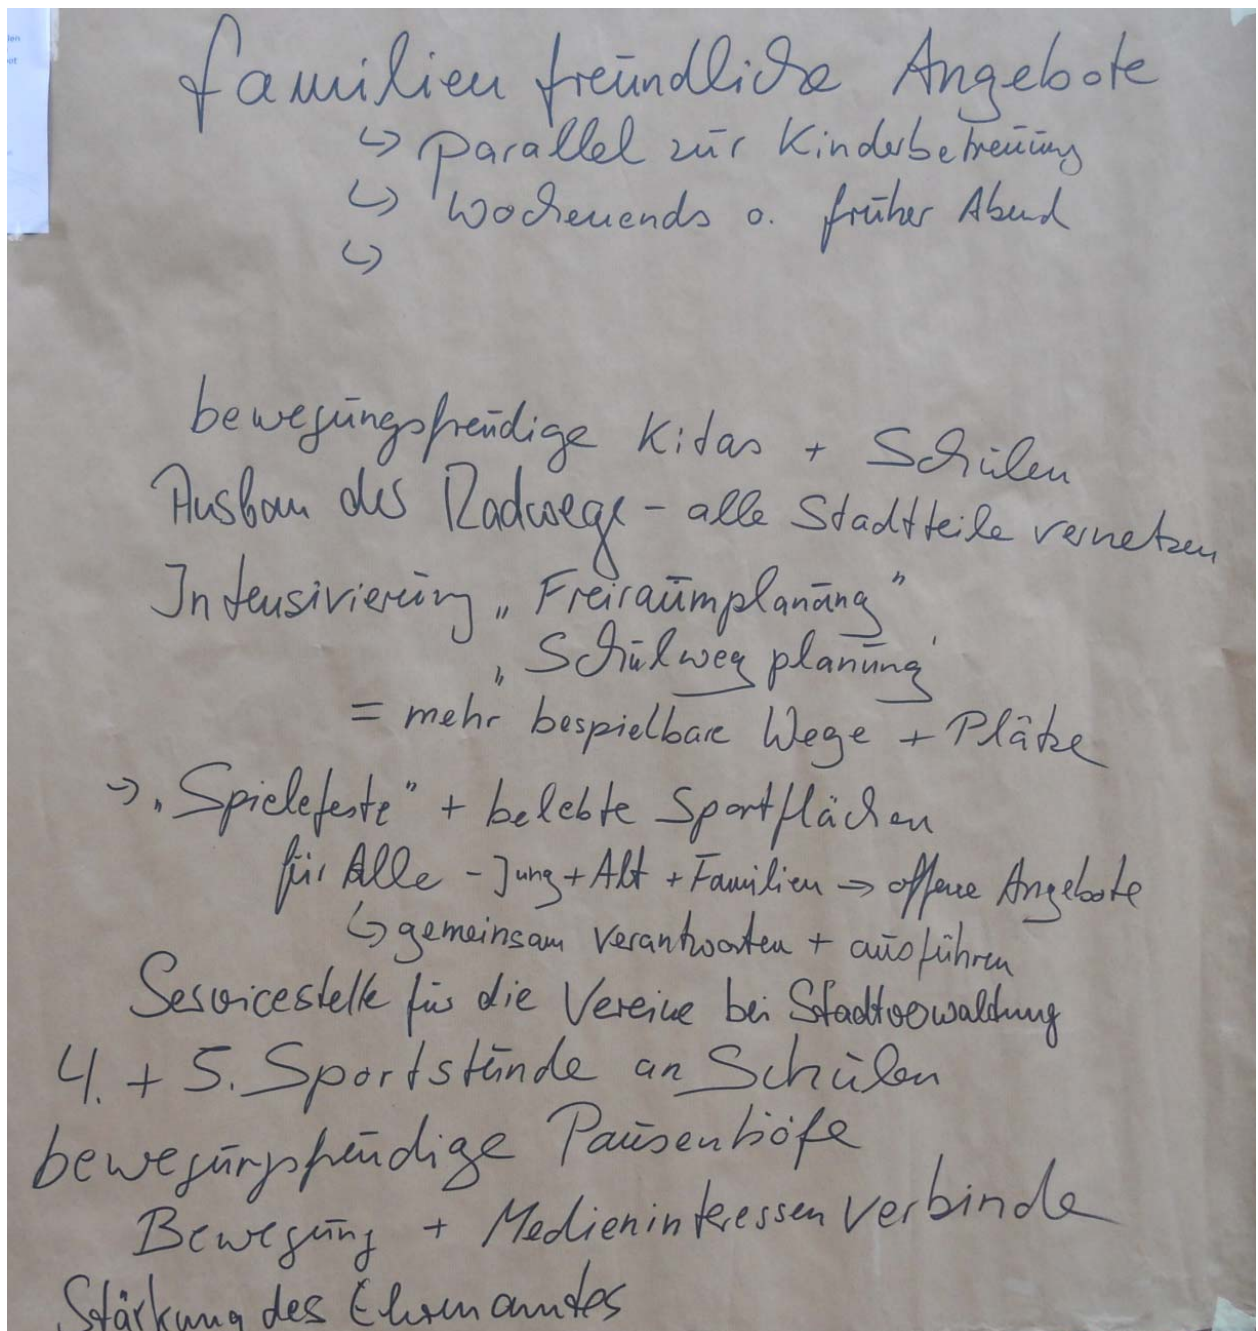 familienfreundliche Angebote
↳ parallel zur Kinderbetreuung
↳ Wochenends o. früher Abend
↳
bewegungsfreudige Kitas + Schulen
Ausbau der Radwege - alle Stadtteile vernetzen
Intensivierung „Freiraumplanung"
„Schulwegplanung'
= mehr bespielbare Wege + Plätze
→ „Spielefeste" + belebte Sportflächen
für Alle - Jung + Alt + Familien → offene Angebote
↳ gemeinsam verantworten + ausführen
Servicestelle für die Vereine bei Stadtverwaltung
4. + 5. Sportstunde an Schulen
bewegungsfreudige Pausenhöfe
Bewegung + Medieninteressen verbinde
Stärkung des Ehrenamtes